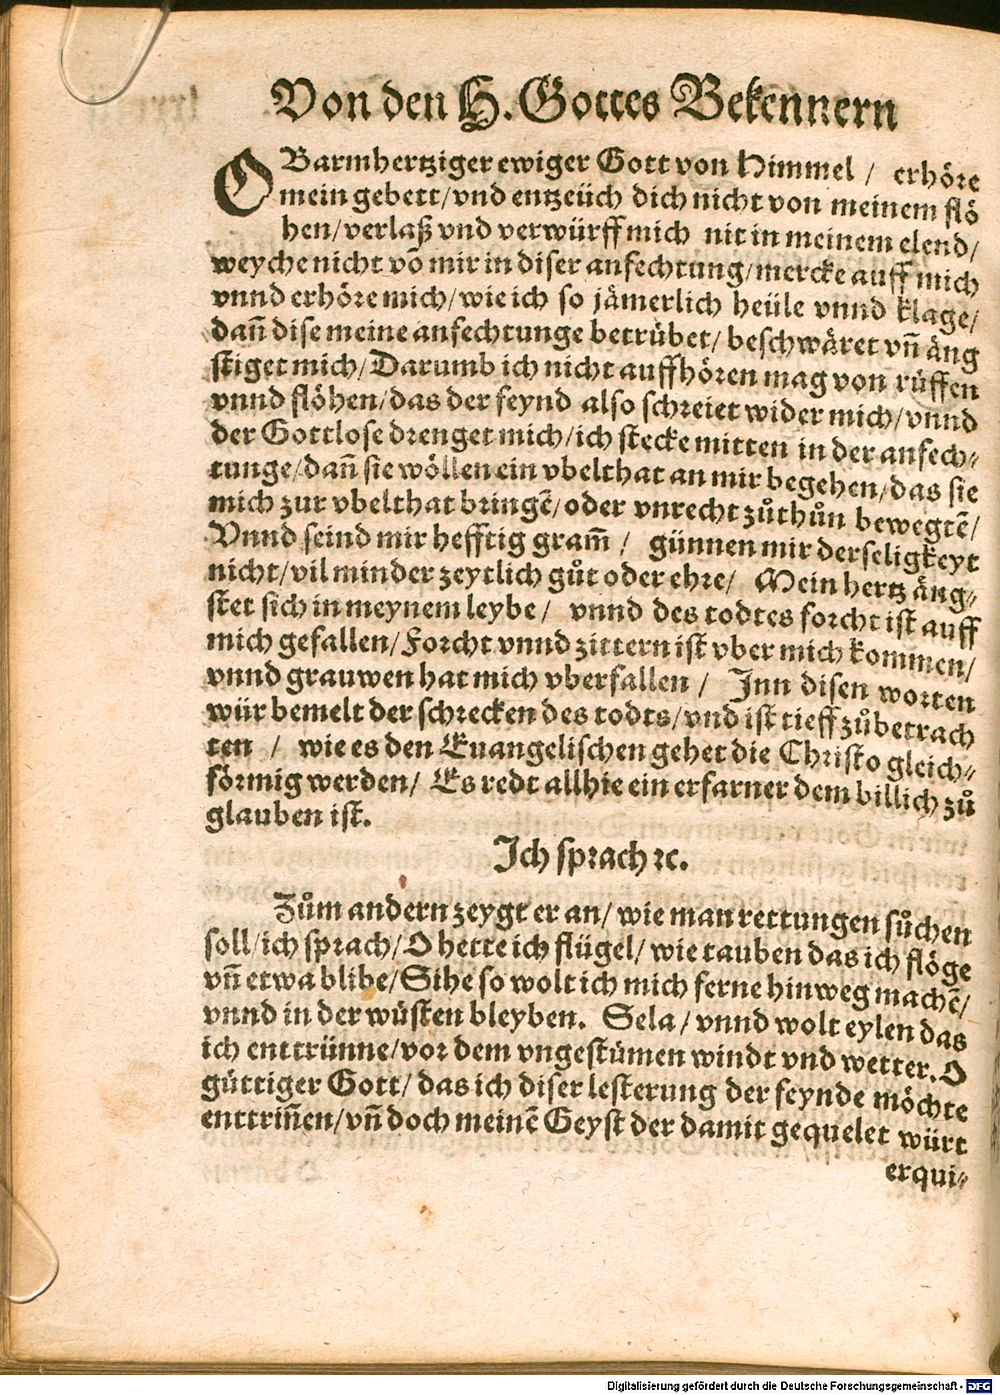 Von den H. Gottes Bekennern
O Barmhertziger ewiger Gott von Himmel / erhöre
mein gebett/vnd entzeüch dich nicht von meinem flö
hen/verlaß vnd verwürff mich nit in meinem elend/
weyche nicht võ mir in diser anfechtung/mercke auff mich
vnnd erhöre mich/wie ich so jämerlich heüle vnnd klage/
dañ dise meine anfechtunge betrübet/beschwäret vñ äng
stiget mich/Darumb ich nicht auffhören mag von rüffen
vnnd flöhen/das der feynd also schreiet wider mich/vnnd
der Gottlose drenget mich/ich stecke mitten in der anfech⸗
tunge/dañ sie wöllen ein vbelthat an mir begehen/das sie
mich zur vbelthat bringẽ/oder vnrecht zůthůn bewegtẽ/
Vnnd seind mir hefftig gram̃ / günnen mir der seligkeyt
nicht/vil minder zeytlich gůt oder ehre/ Mein hertz äng⸗
stet sich in meynem leybe / vnnd des todtes forcht ist auff
mich gefallen/Forcht vnnd zittern ist vber mich kommen/
vnnd grauwen hat mich vberfallen / Inn disen worten
würbemelt der schrecken des todts/vnd ist tieff zůbetrach
ten / wie es den Euangelischen gehet die Christo gleich⸗
förmig werden/ Es redt allhie ein erfarner dem billich zů
glauben ist.
Ich sprach ꝛc.
Zům andern zeygt er an/wie man rettungen sůchen
soll/ich sprach/O hette ich flügel/wie tauben das ich flöge
vñ etwa blibe/Sihe so wolt ich mich ferne hinweg machẽ/
vnnd in der wüsten bleyben. Sela/vnnd wolt eylen das
ich enttrünne/vor dem vngestümen windt vnd wetter. O
güttiger Gott/das ich diser lesterung der feynde möchte
enttriñen/vñ doch meinẽ Geyst der damit gequelet würt
erqui⸗
Digitalisierung gefördert durch die Deutsche Forschungsgemeinschaft - DFG